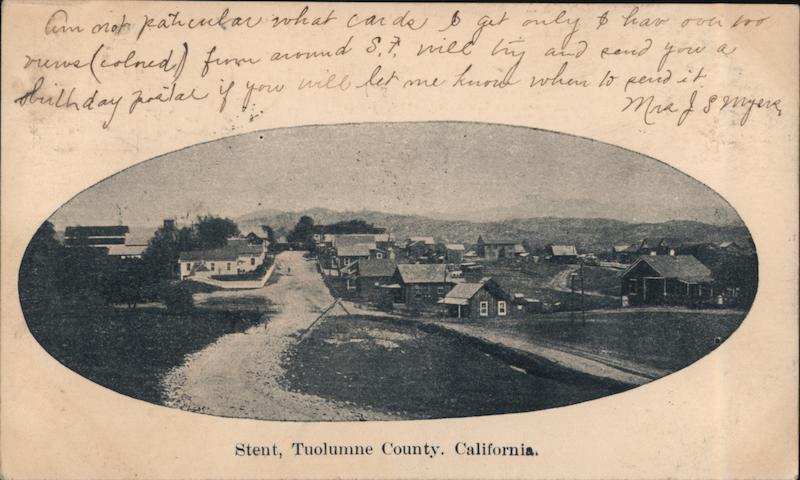 Am not paticular what cards I get only I hav over 100
views (colored) from around S.F. will try and send you a
birthday postal if you will let me know when to send it
Mrs J S Myers
Stent, Tuolumne County. California.